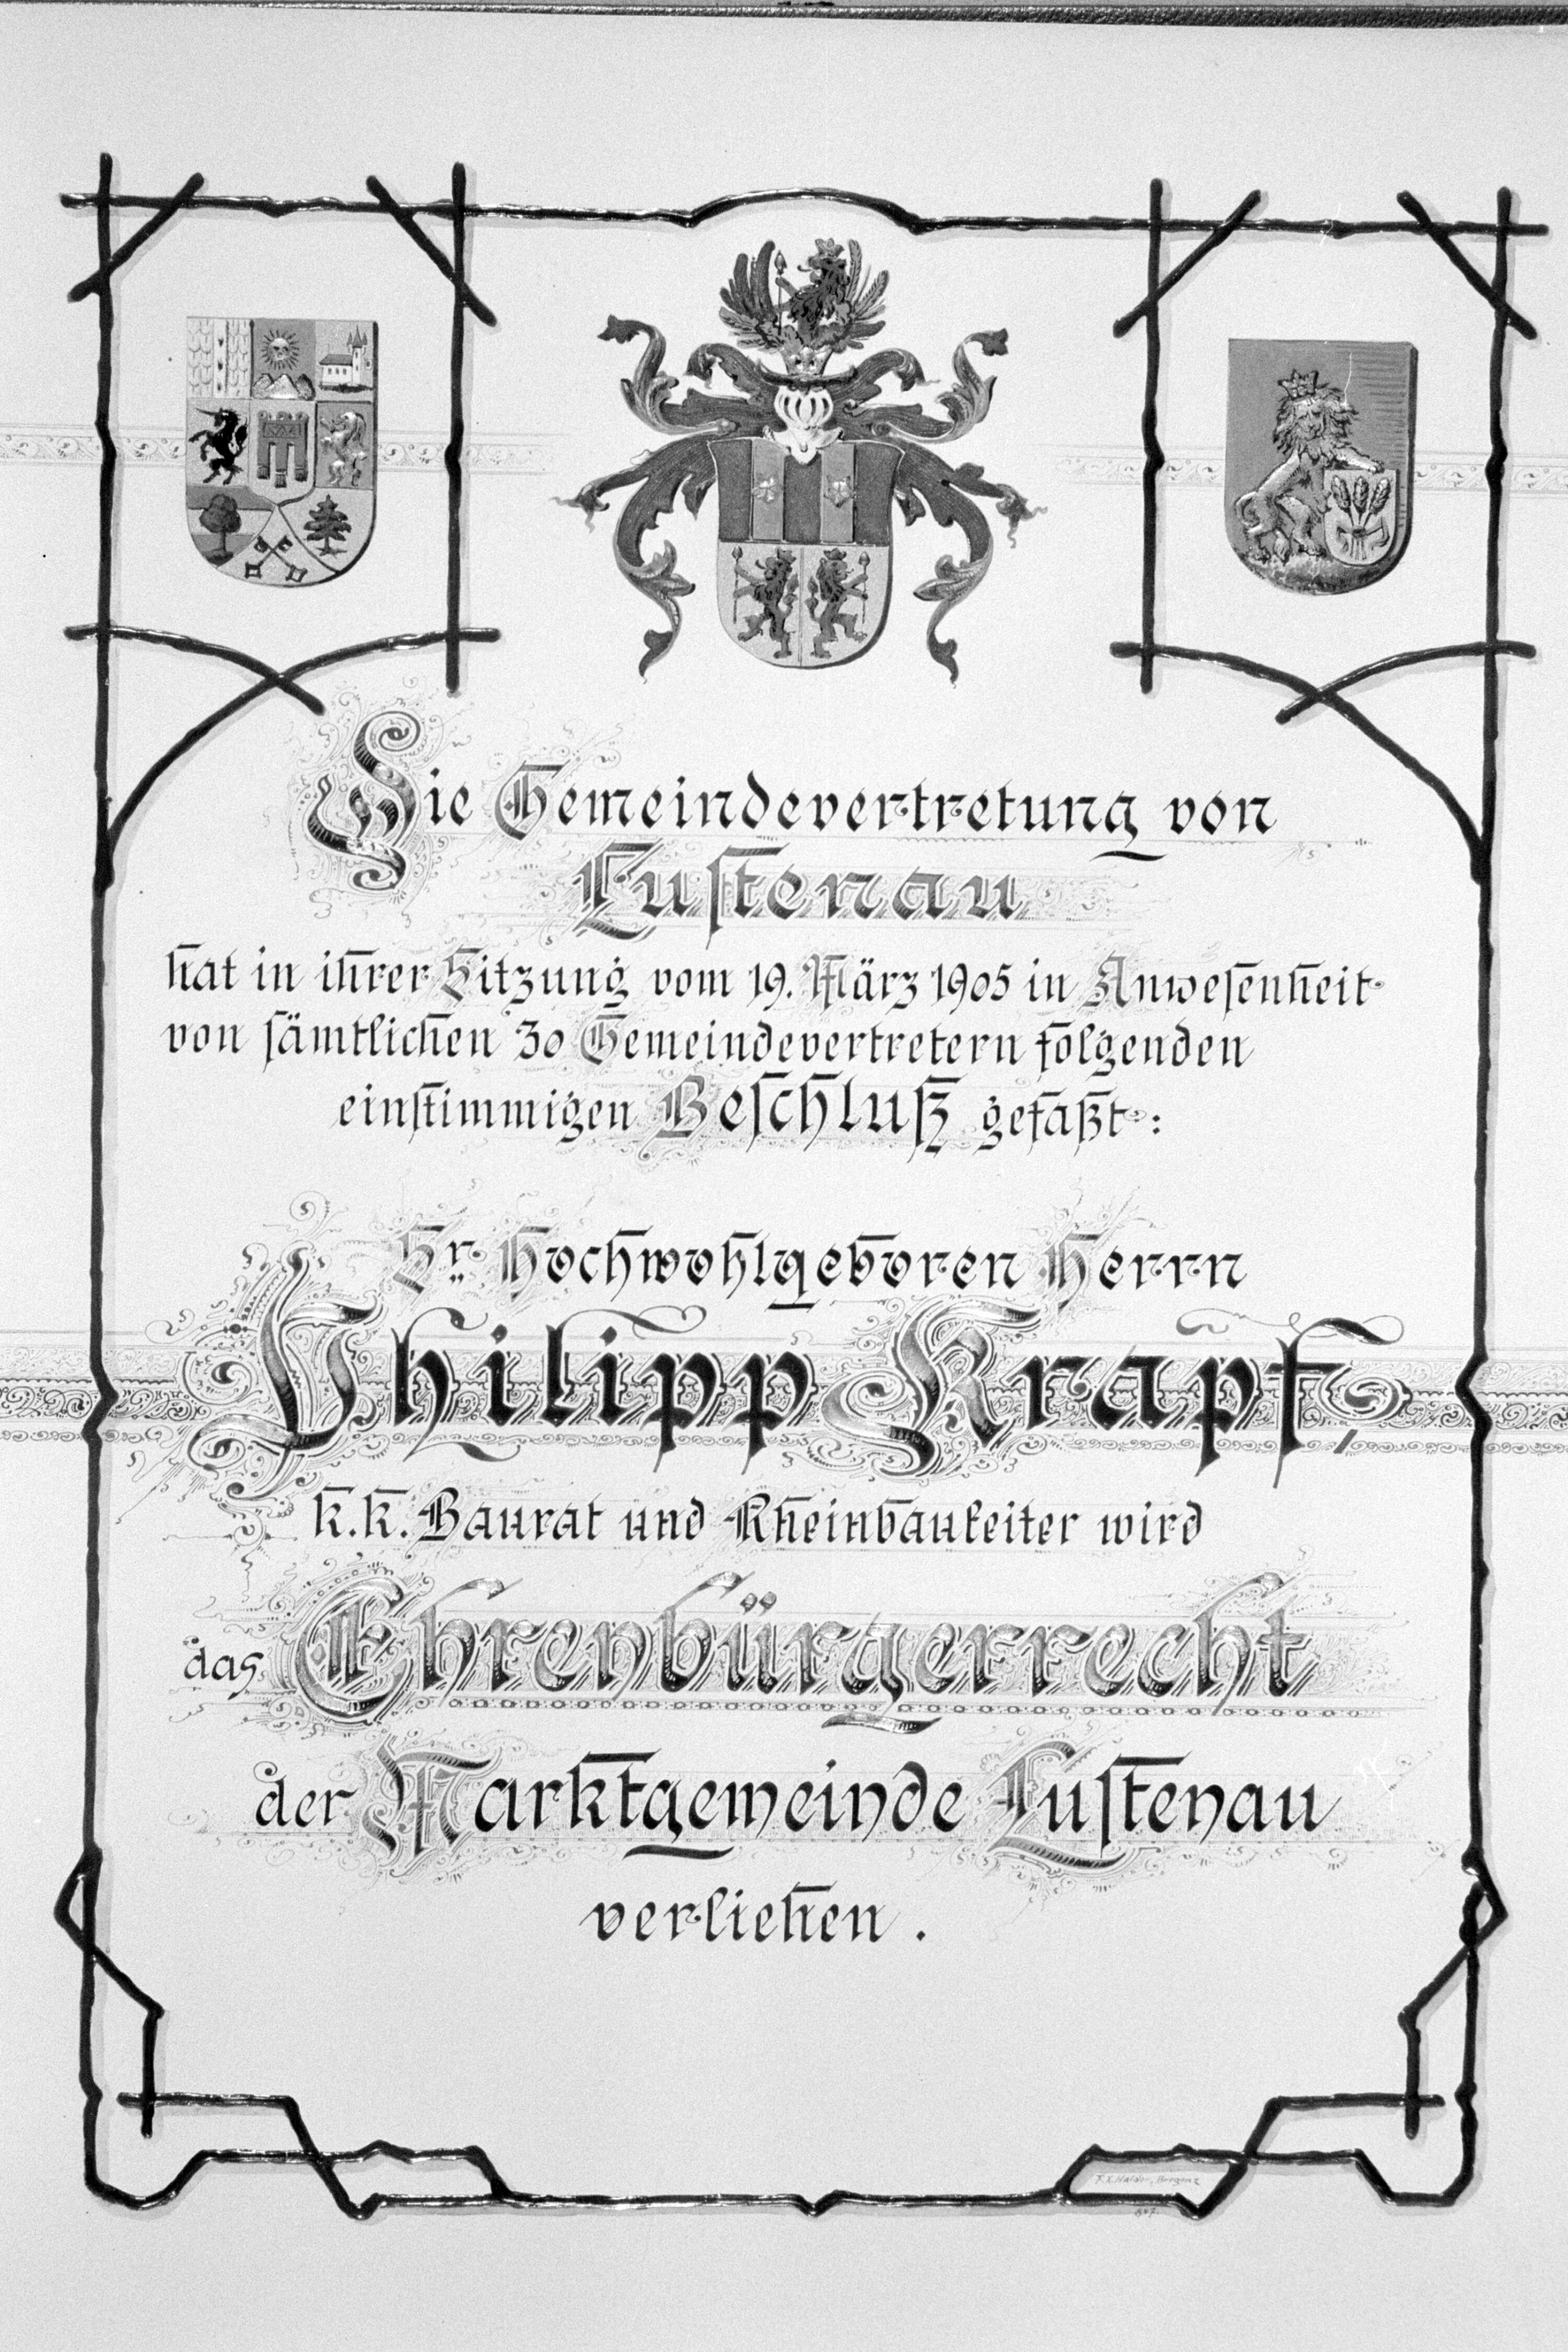 Die Gemeindevertretung von
Lustenau
hat in ihrer Sitzung vom 19. März 1905 in Anwesenheit
von sämtlichen 30 Gemeindevertretern folgenden
einstimmigen Beschluß gefaßt:
Sr. Hochwohlgeboren Herrn
Philipp Krapf,
k. k. Baurat und Rheinbauleiter wird
das Ehrenbürgerrecht
der Marktgemeinde Lustenau
verliehen.
F. X. Halder, Bregenz